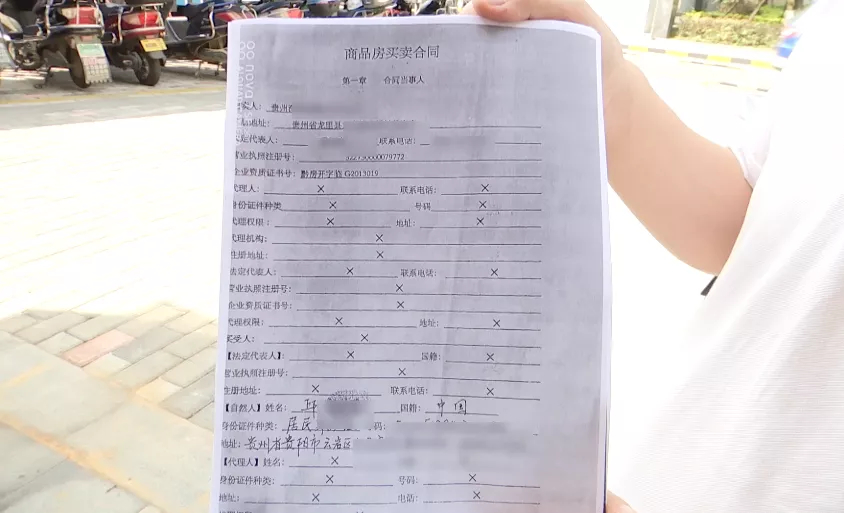 商品房买卖合同
第一章 合同当事人
卖人: 贵州
地址: 贵州省龙里县
定代表人: 联系电话:
营业执照注册号: 522730000079772
企业资质证书号: 黔房开字临 G2013019
代理人: × 联系电话: ×
身份证件种类 × 号码 ×
代理权限: × 地址: ×
代理机构: ×
注册地址: ×
法定代表人: × 联系电话: ×
营业执照注册号: ×
企业资质证书号: ×
代理权限: × 地址: ×
买受人: ×
【法定代表人】: × 国籍: ×
营业执照注册号: ×
注册地址: × 联系电话: ×
【自然人】姓名: 国籍: 中国
身份证件种类: 居民 码:
地址: 贵州省贵阳市云岩区
【代理人】姓名: ×
身份证件种类: × 号码: ×
地址: × 电话: ×